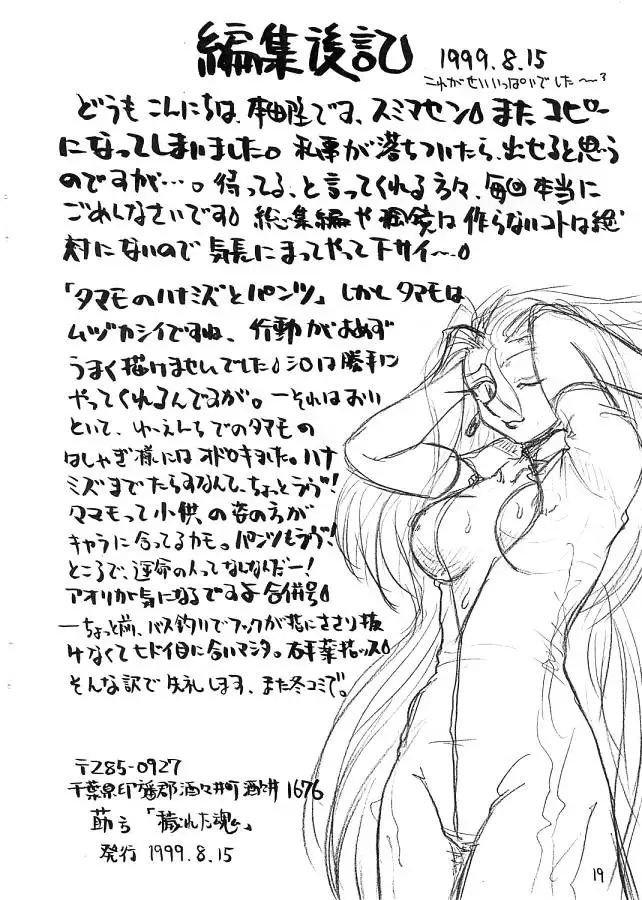 編集後記
1999.8.15
これがせいいっぱいでした〜
どうもこんにちは、本田です、スミマセン。またコピー
になってしまいました。私事が落ちついたら、出せると思う
のですが…。待ってる、と言ってくれる方々、毎回本当に
ごめんなさいです。総集編や は作らないコトは絶
対にないので気長にまってやって下サイ〜。
「タマモのハナミズとパンツ」しかしタマモは
ムヅカシイですね、行動がおめず
うまく描けませんでした。シロは勝手に
やってくれるんですが。―それはおい
といて、ゆーえんちでのタマモの
はしゃぎ様にはオドロキました。ハナ
ミズまでたらすなんて、ちょっとラヴ!
タマモって小供の姿の方が
キャラに合ってるカモ。パンツもラヴ!
ところで、運命の人ってなんなんだー!
アオリが気になるですよ合併号。
―ちょっと前、バス釣りでフックが指にささり抜
けなくてヒドイ目に合いマシタ。右
そんな訳で失礼します、また冬コミで。
〒285-0927
千葉県印旛郡酒々井町酒々井1676
「穢れた魂」
発行 1999.8.15
19